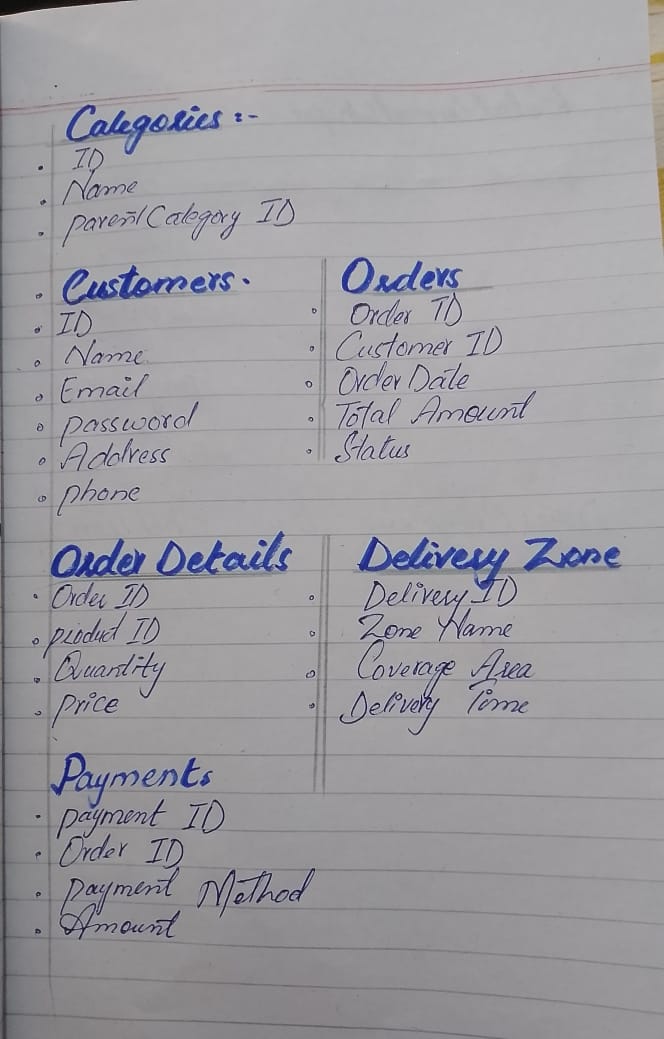 Categories :-
• ID
• Name
• parent Category ID
• Customers.
• ID
• Name
• Email
• password
• Address
• phone
Orders
• Order ID
• Customer ID
• Order Date
• Total Amount
• Status
Order Details
• Order ID
• product ID
• Quantity
• price
Delivery Zone
• Delivery ID
• Zone Name
• Coverage Area
• Delivery Time
Payments
• payment ID
• Order ID
• payment Method
• Amount